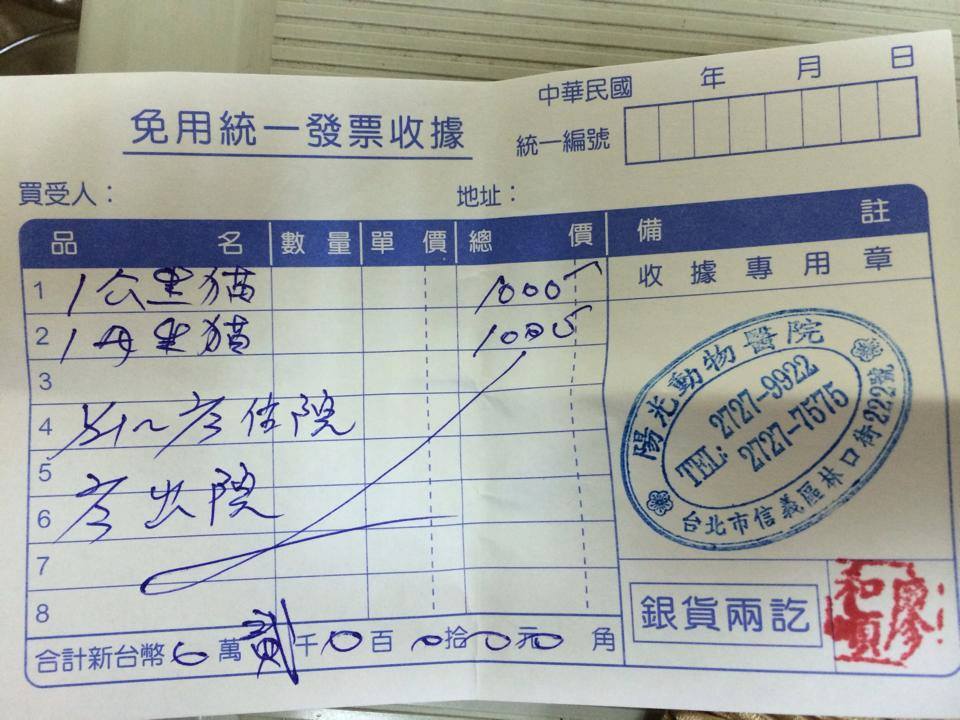 中華民國 年 月 日
免用統一發票收據
統一編號
買受人： 地址：
品名 數量 單價 總價 備註
收據專用章
1 1公黑猫 1000
2 1母黑猫 1000
3
4 住院
5
6 出院
7
8
陽光動物醫院
TEL: 2727-9922
2727-7575
台北市信義區林口街222號
合計新台幣 0 萬 貳 千 0 百 0 拾 0 元 0 角
銀貨兩訖
廖和